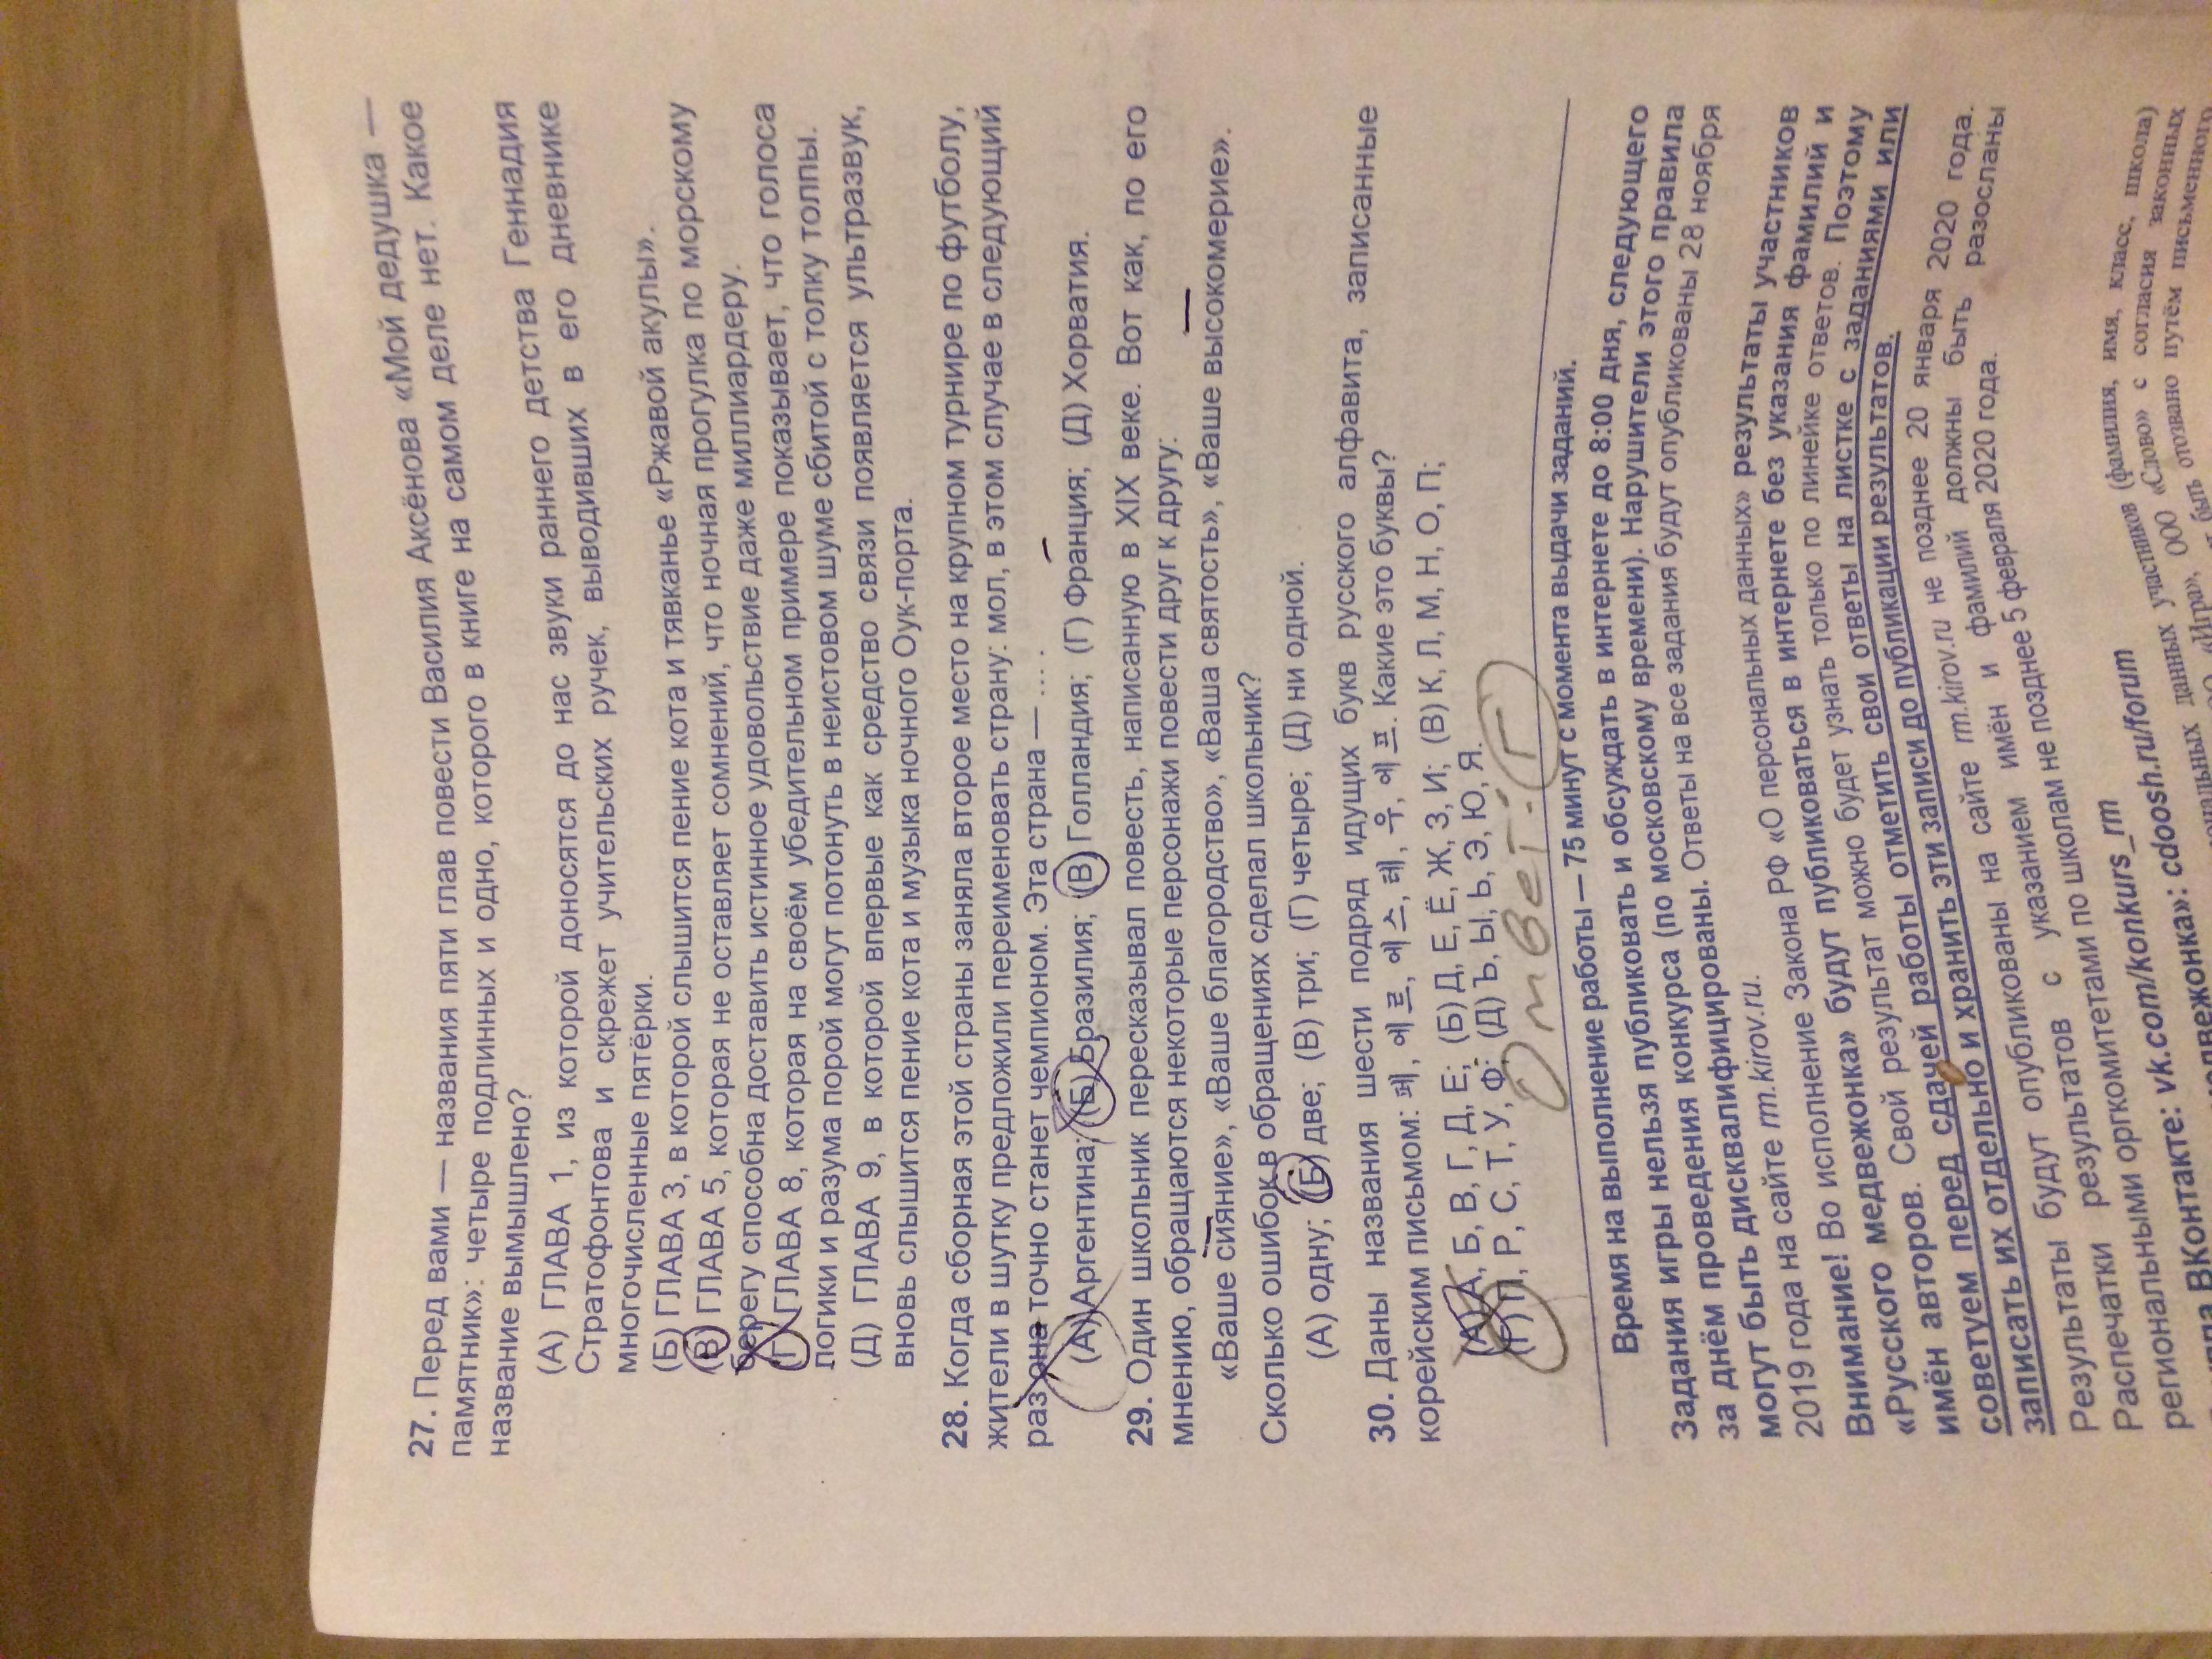 27. Перед вами — названия пяти глав повести Василия Аксёнова «Мой дедушка —
памятник»: четыре подлинных и одно, которого в книге на самом деле нет. Какое
название вымышлено?
(А) ГЛАВА 1, из которой доносятся до нас звуки раннего детства Геннадия
Стратофонтова и скрежет учительских ручек, выводивших в его дневнике
многочисленные пятёрки.
(Б) ГЛАВА 3, в которой слышится пение кота и тявканье «Ржавой акулы».
(В) ГЛАВА 5, которая не оставляет сомнений, что ночная прогулка по морскому
берегу способна доставить истинное удовольствие даже миллиардеру.
(Г) ГЛАВА 8, которая на своём убедительном примере показывает, что голоса
логики и разума порой могут потонуть в неистовом шуме сбитой с толку толпы.
(Д) ГЛАВА 9, в которой впервые как средство связи появляется ультразвук,
вновь слышится пение кота и музыка ночного Оук-порта.
28. Когда сборная этой страны заняла второе место на крупном турнире по футболу,
жители в шутку предложили переименовать страну: мол, в этом случае в следующий
раз она точно станет чемпионом. Эта страна — ... .
(А) Аргентина; (Б) Бразилия; (В) Голландия; (Г) Франция; (Д) Хорватия.
29. Один школьник пересказывал повесть, написанную в XIX веке. Вот как, по его
мнению, обращаются некоторые персонажи повести друг к другу:
«Ваше сияние», «Ваше благородство», «Ваша святость», «Ваше высокомерие».
Сколько ошибок в обращениях сделал школьник?
(А) одну; (Б) две; (В) три; (Г) четыре; (Д) ни одной.
30. Даны названия шести подряд идущих букв русского алфавита, записанные
корейским письмом: 페, 에르, 에스, 테, 우, 에프. Какие это буквы?
(А) А, Б, В, Г, Д, Е; (Б) Д, Е, Ё, Ж, З, И; (В) К, Л, М, Н, О, П;
(Г) П, Р, С, Т, У, Ф; (Д) Ъ, Ы, Ь, Э, Ю, Я.
Ответ: Г
Время на выполнение работы — 75 минут с момента выдачи заданий.
Задания игры нельзя публиковать и обсуждать в интернете до 8:00 дня, следующего
за днём проведения конкурса (по московскому времени). Нарушители этого правила
могут быть дисквалифицированы. Ответы на все задания будут опубликованы 28 ноября
2019 года на сайте rm.kirov.ru.
Внимание! Во исполнение Закона РФ «О персональных данных» результаты участников
«Русского медвежонка» будут публиковаться в интернете без указания фамилий и
имён авторов. Свой результат можно будет узнать только по линейке ответов. Поэтому
советуем перед сдачей работы отметить свои ответы на листке с заданиями или
записать их отдельно и хранить эти записи до публикации результатов.
Результаты будут опубликованы на сайте rm.kirov.ru не позднее 20 января 2020 года.
Распечатки результатов с указанием имён и фамилий должны быть разосланы
региональными оргкомитетами по школам не позднее 5 февраля 2020 года.
ВКонтакте: vk.com/konkurs_rm
cdoosh.ru/forum
данных участников (фамилия, имя, класс, школа)
ООО «Слово» с согласия законных
«Игра», быть отозвано путём письменного